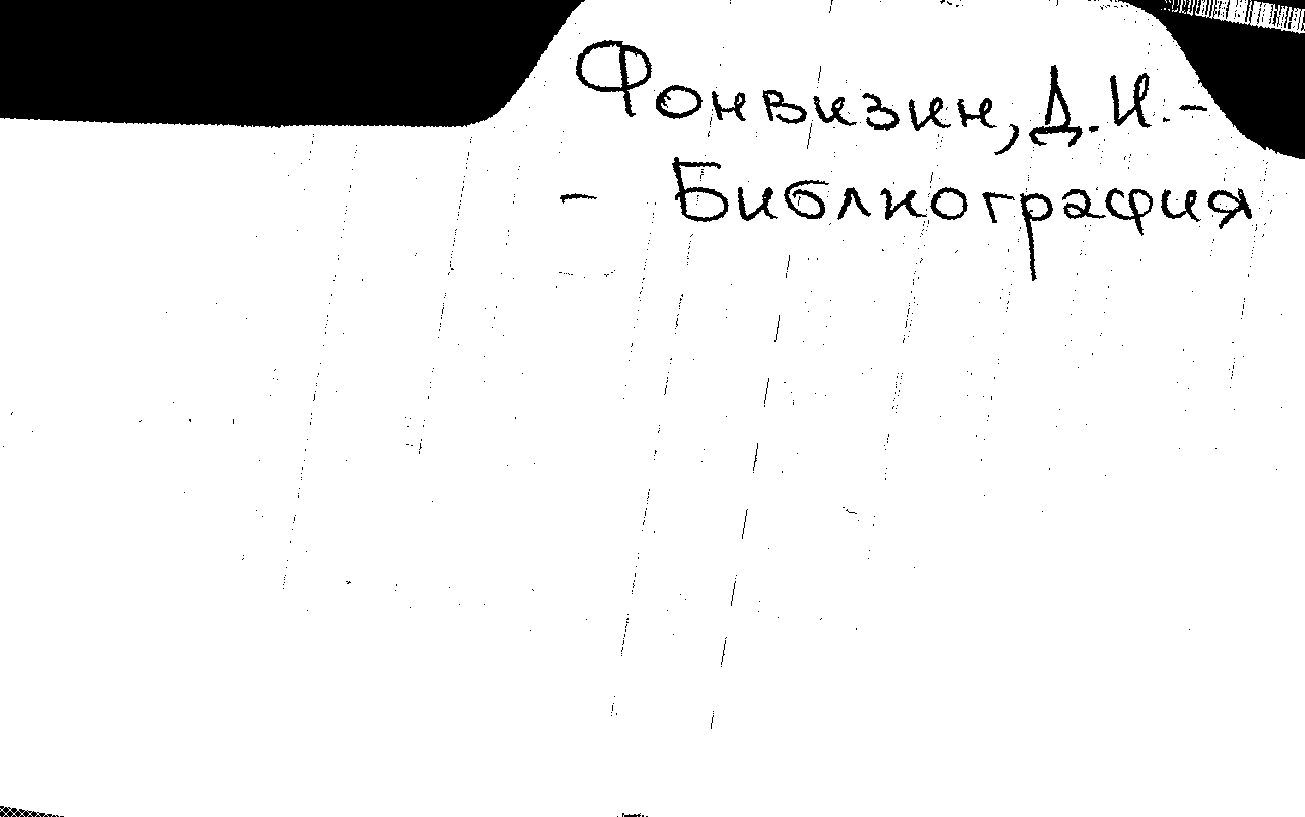 Фонвизин, Д.И. -
- Библиография